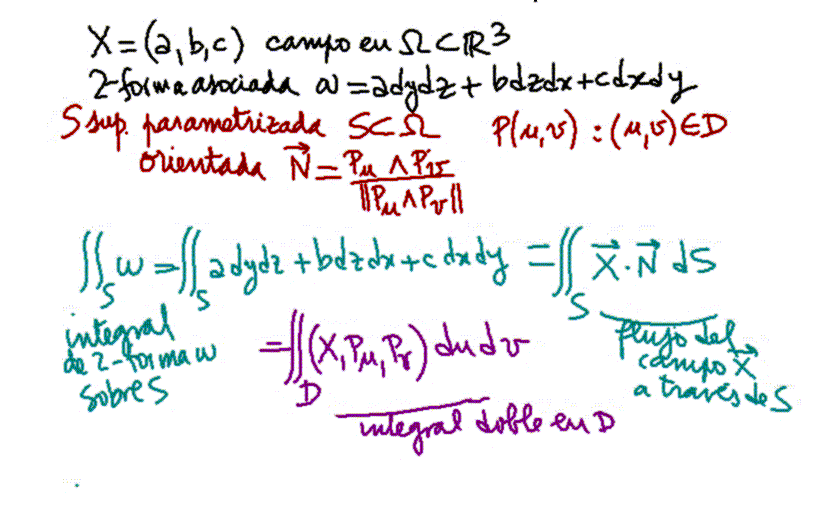 X = (a,b,c) campo en Ω ⊂ ℝ³
2-forma asociada ω = adydz + bdzdx + cdxdy
S sup. parametrizada S ⊂ Ω P(u,v) : (u,v) ∈ D
orientada N⃗ = P_u ∧ P_v / ||P_u ∧ P_v||
∬_S ω = ∬_S adydz + bdzdx + c dxdy = ∬_S X⃗ · N⃗ dS
integral
de 2-forma ω
sobre S
flujo del
campo X⃗
a través de S
= ∬_D (X, P_u, P_v) du dv
integral doble en D